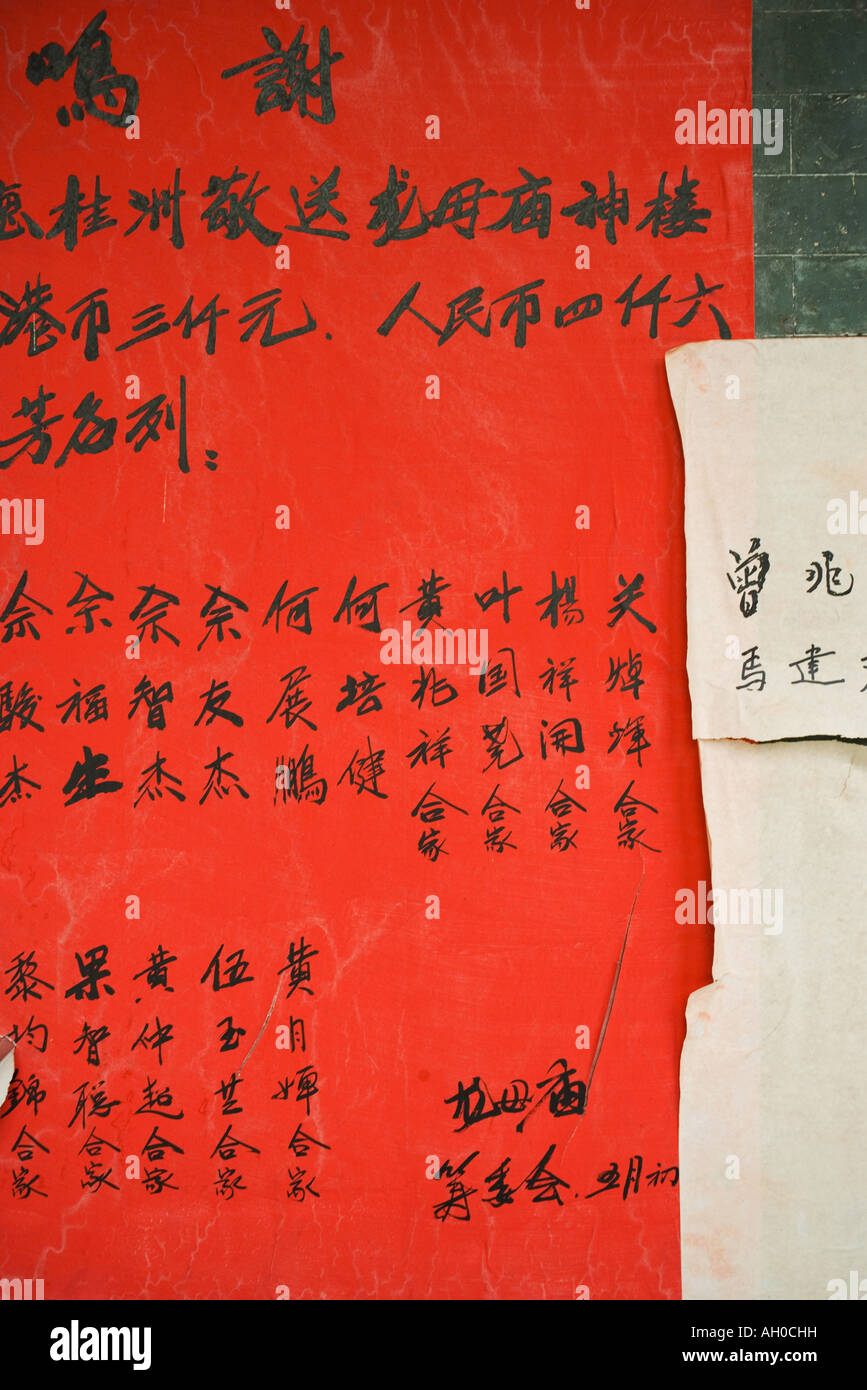 鳴謝
桂洲敬送龙母庙神楼
港币三仟元.人民币四仟六
芳名列:
关焯辉合家
楊祥開合家
叶国尧合家
黄兆祥合家
何培健
何展鵬
佘友杰
佘智杰
佘福生
佘駿杰
黄月婵合家
伍玉芸合家
黄仲超合家
果智聪合家
黎均錦合家
龙母庙
筹委会.五月初
曾兆
馬建
alamy
Image ID: AH0CHH
www.alamy.com